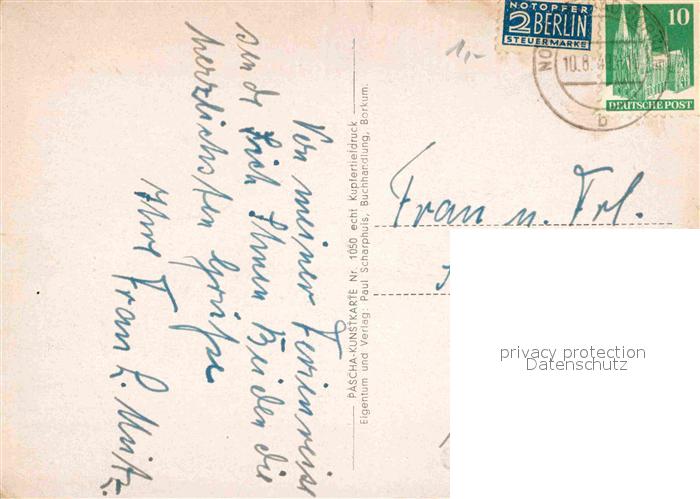 NOTOPFER
2 BERLIN
STEUERMARKE
10
DEUTSCHE POST
10.8.49
b
1,-
Von meiner Ferienreise
sende ich Ihnen Beiden die
herzlichsten Grüße
Ihre Frau L.
PASCHA-KUNSTKARTE Nr. 1050 echt Kupfertiefdruck
Eigentum und Verlag: Paul Scharphuis, Buchhandlung, Borkum.
Frau u. Frl.
privacy protection
Datenschutz